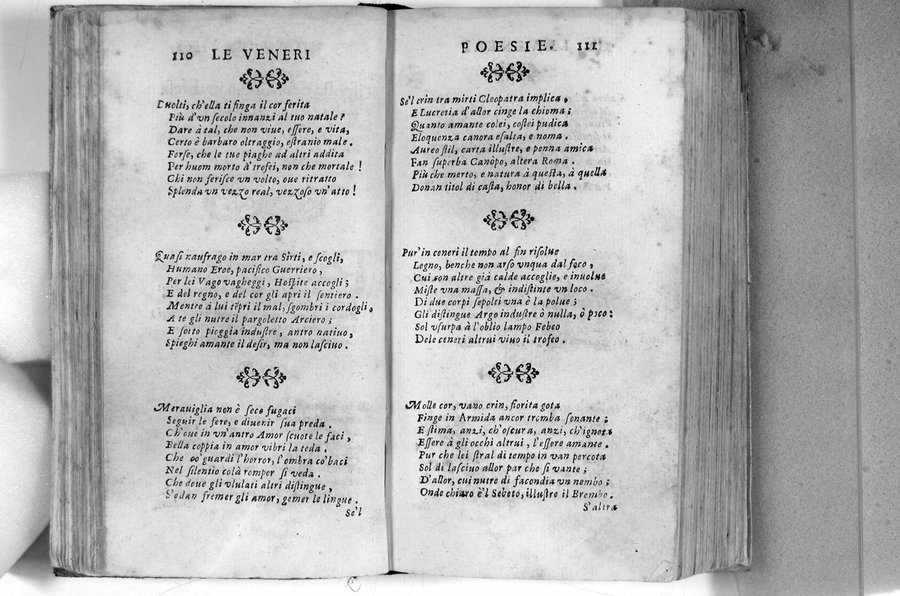 110 LE VENERI
Duolti, ch'ella ti finga il cor ferita
Più d'vn ſecolo innanzi al tuo natale?
Dare à tal, che non viue, eſſere, e vita,
Certo è barbaro oltraggio, eſtranio male.
Forſe, che le tue piaghe ad altri addita
Per huom morto à trofei, non che mortale!
Chi non feriſce vn volto, oue ritratto
Splenda vn vezzo real, vezzoſo vn'atto!
Quaſi naufrago in mar tra Sirti, e ſcogli,
Humano Eroe, pacifico Guerriero,
Per lei Vago vagheggi, Hoſpite accogli;
E del regno, e del cor gli apri il ſentiero.
Mentre à lui tẽpri il mal, ſgombri i cordogli,
A te gli nutre il pargoletto Arciero;
E ſotto pioggia induſtre, antro natiuo,
Spieghi amante il deſir, ma non laſciuo.
Merauiglia non è ſeco fugaci
Seguir le fere, e diuenir ſua preda.
Ch'oue in vn'antro Amor ſcuote le faci,
Bella coppia in amor vibri la teda.
Che co' guardi l'horror, l'ombra co' baci
Nel ſilentio colà romper ſi veda.
Che doue gli vlulati altri diſtingue,
S'odan fremer gli amor, gemer le lingue.
Se'l
POESIE. 111
Se'l crin tra mirti Cleopatra implica,
E Lucretia d'allor cinge la chioma;
Quanto amante colei, coſtei pudica
Eloquenza canora eſalta, e noma.
Aureo ſtil, carta illuſtre, e penna amica
Fan ſuperba Canopo, altera Roma.
Più che merto, e natura à queſta, à quella
Donan titol di caſta, honor di bella.
Pur'in ceneri il tempo al fin riſolue
Legno, benche non arſo vnqua dal foco,
Cui con altre già calde accoglie, e inuolue
Miſte vna maſſa, & indiſtinte vn loco.
Di due corpi ſepolti vna è la polue;
Gli diſtingue Argo induſtre ò nulla, ò poco:
Sol vſurpa à l'oblio lampo Febeo
Dele ceneri altrui viuo il trofeo.
Molle cor, vano crin, fiorita gota
Finge in Armida ancor tromba ſonante;
E ſtima, anzi, ch'oſcura, anzi, ch'ignota
Eſſere à gli occhi altrui, l'eſſere amante.
Pur che lei ſtral di tempo in van percota
Sol di laſciuo allor par che ſi vante;
D'allor, cui nutre di facondia vn nembo;
Onde chiaro è'l Sebeto, illuſtre il Brembo.
S'altra